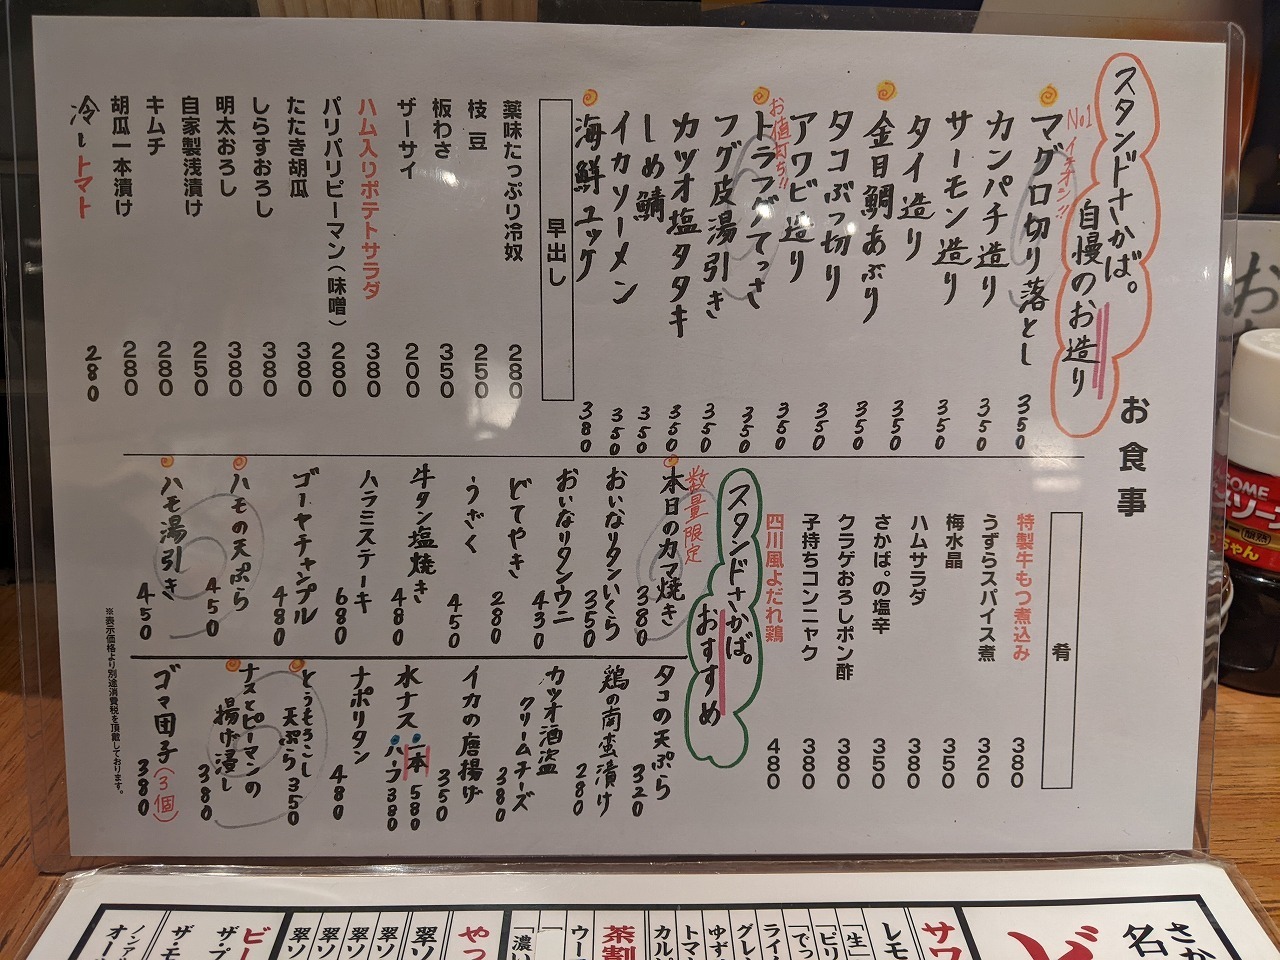 お食事
スタンドさかば。
自慢のお造り
No1 イチオシ!!
マグロ切り落とし 350
カンパチ造り 350
サーモン造り 350
タイ造り 350
金目鯛あぶり 350
タコぶっ切り 350
アワビ造り 350
お値打ち!!
トラフグてっさ 350
フグ皮湯引き 350
カツオ塩タタキ 350
しめ鯖 350
イカソーメン 350
海鮮ユッケ 380
早出し
薬味たっぷり冷奴 280
枝豆 250
板わさ 350
ザーサイ 200
ハム入りポテトサラダ 380
パリパリピーマン(味噌) 280
たたき胡瓜 380
しらすおろし 380
明太おろし 380
自家製浅漬け 250
キムチ 280
胡瓜一本漬け 280
冷しトマト 280
肴
特製牛もつ煮込み 380
うずらスパイス煮 320
梅水晶 350
ハムサラダ 380
さかば。の塩辛 350
クラゲおろしポン酢 380
子持ちコンニャク 380
四川風よだれ鶏 480
スタンドさかば。
おすすめ
数量限定
本日のカマ焼き 380
おいなりタンいくら 350
おいなりタンウニ 430
どてやき 280
うざく 450
牛タン塩焼き 480
ハラミステーキ 680
ゴーヤチャンプル 480
ハモの天ぷら 450
ハモ湯引き 450
タコの天ぷら 320
鶏の南蛮漬け 280
カツオ酒盗
クリームチーズ 380
イカの唐揚げ 350
水ナス・一本 580
・ハーフ 380
ナポリタン 480
とうもろこし
天ぷら 350
ナスとピーマンの
揚げ浸し 380
ゴマ団子(3個) 380
※表示価格より別途消費税を頂戴しております。
さか
名
ど
サワ
レモ
「生」
「ピリ
「でっ
ライ
グレ
ゆず
トマ
カルピ
茶割
ウー
「濃い
やつ
翠ソ
翠ソ
翠ソ
翠ソ
翠ソ
ビー
ザ・プ
ザ・モ
ノンアル
オー